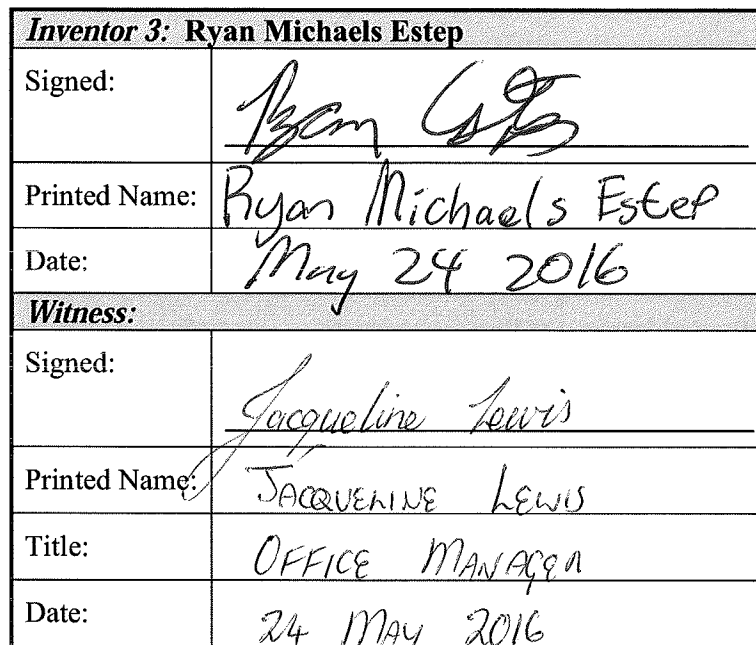 Inventor 3: Ryan Michaels Estep
Signed: Ryan Estep
Printed Name: Ryan Michaels Estep
Date: May 24 2016
Witness:
Signed: Jacqueline Lewis
Printed Name: JACQUELINE LEWIS
Title: OFFICE MANAGER
Date: 24 MAY 2016